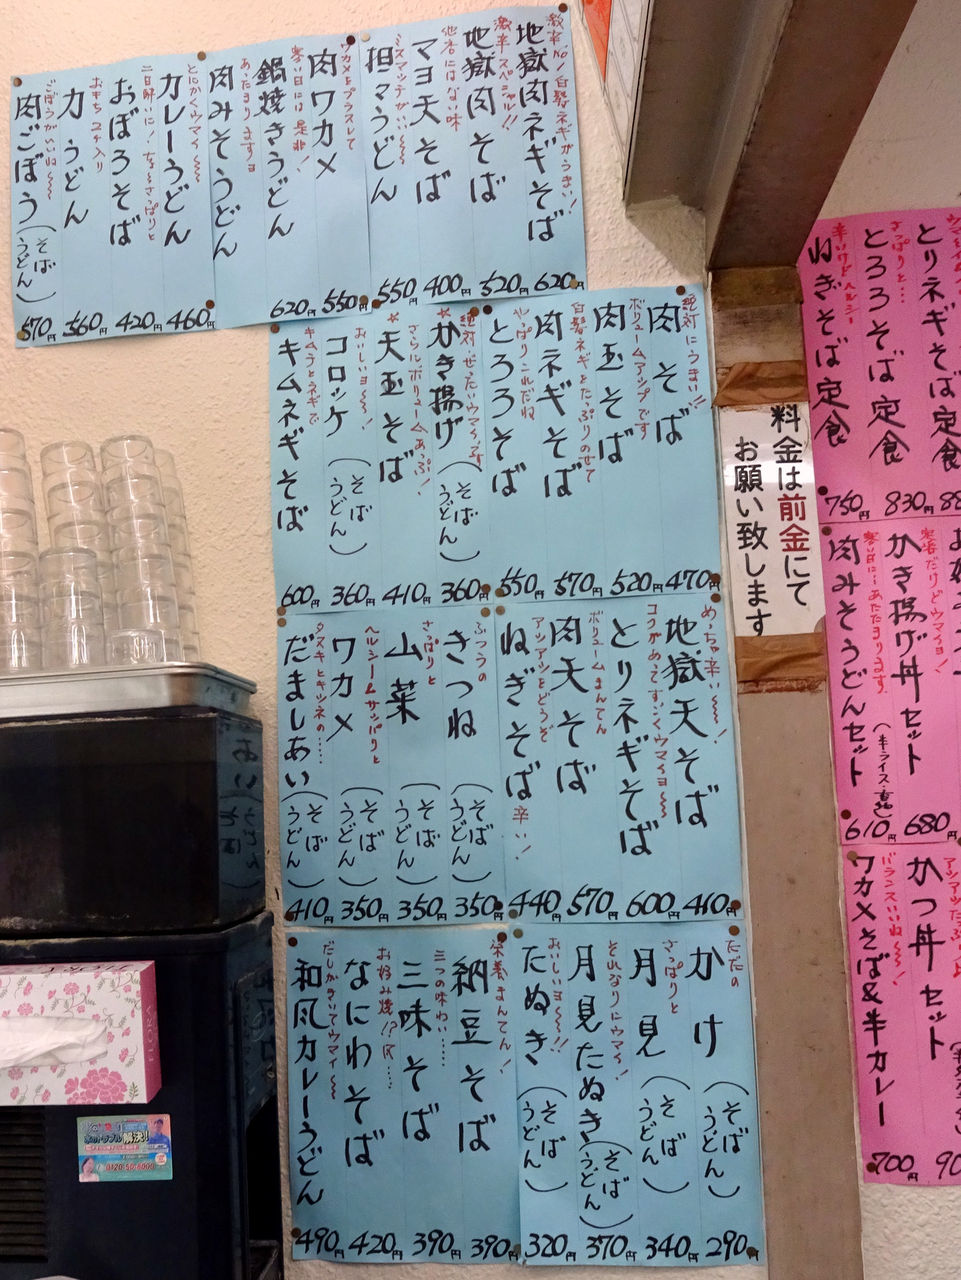 激辛だ!白髪ネギがうまい!
地獄肉ネギそば
620円
激辛スペシャル!!
地獄肉そば
520円
他店にはない味
マヨ天そば
400円
ミスマッチがいい〜〜
担々うどん
550円
ワカメをプラスして
肉ワカメ
550円
寒い日には是非!
鍋焼きうどん
620円
あったまりますヨ
肉みそうどん
とにかくウマイ〜〜〜
カレーうどん
460円
二日酔いに!な〜さっぱりと
おぼろそば
420円
おもち2ヶ入り
力うどん
360円
ごぼうがいいね〜〜
肉ごぼう(そば うどん)
570円
絶対にうまい!!
肉そば
470円
ボリュームアップです
肉玉そば
520円
白髪ネギをたっぷりのせて
肉ネギそば
570円
やっぱりこれだね
とろろそば
550円
☆絶対・ぜったいウマイっす
かき揚げ(そば うどん)
360円
☆さらにボリュームあっぷ!
天玉そば
410円
おいしいヨ〜〜!
コロッケ(そば うどん)
360円
キムチとネギで
キムネギそば
600円
めっちゃ辛い〜〜〜!
地獄天そば
410円
コクがあってすっごくウマイヨ〜〜〜
とりネギそば
600円
ボリュームまんてん
肉天そば
570円
アツアツをどうぞ
ねぎそば 辛い!
440円
ふつうの
きつね(そば うどん)
350円
さっぱりと
山菜(そば うどん)
350円
ヘルシーームサッパリと
ワカメ(そば うどん)
350円
タヌキとキツネの……
だましあい(そば うどん)
410円
ただの
かけ(そば うどん)
290円
さっぱりと
月見(そば うどん)
340円
それなりにウマイ!
月見たぬき(そば うどん)
370円
おいしいヨ〜〜!!
たぬき(そば うどん)
320円
栄養まんてん!
納豆そば
390円
三つの味わい……
三味そば
390円
お好み焼!?
なにわそば
420円
だしがきいてウマイ〜
和風カレーうどん
490円
料金は前金にて
お願い致します
とりネギそば定食
さっぱりと…
とろろそば定食
830円
辛いけどヘルシー
ねぎそば定食
750円
定番だけどウマイヨ!
かき揚げ丼セット
680円
寒い日に…あたたまります
肉みそうどんセット
610円
かつ丼セット
バランスいいね〜〜!
ワカメそば&半カレー
700円
FLORA
解決!